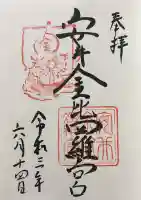 奉拝
安井金比羅宮
令和三年
六月十四日